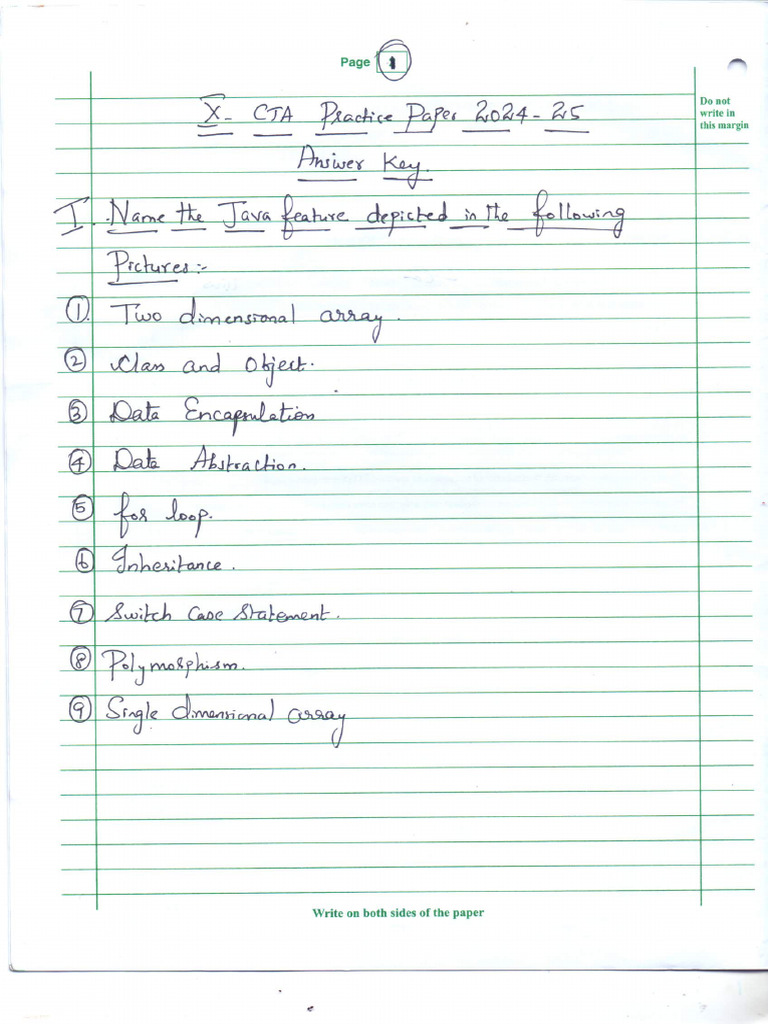 Page 1
Do not
write in
this margin
X- CTA Practice Paper 2024-25
Answer Key.
I. Name the Java feature depicted in the following
Pictures:-
1. Two dimensional array.
2 Class and Object.
3 Data Encapsulation
4 Data Abstraction.
5 for loop.
6 Inheritance.
7 Switch Case Statement.
8 Polymorphism.
9 Single dimensional array
Write on both sides of the paper